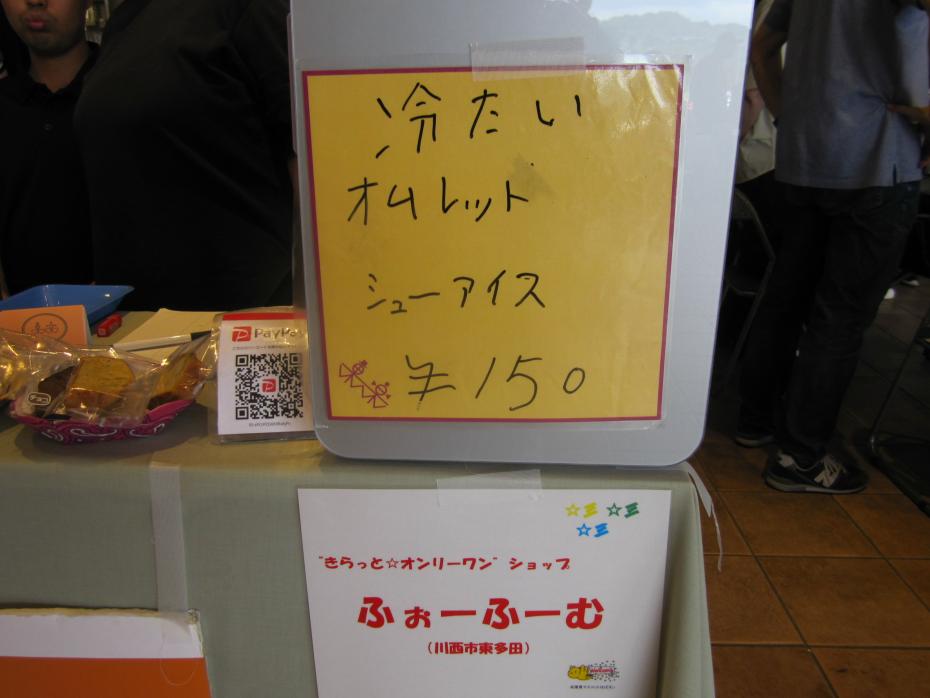 冷たい
オムレット
シューアイス
¥150
PayPay
チョコ
☆三 ☆三
☆三
"きらっと☆オンリーワン" ショップ
ふぉーふーむ
(川西市東多田)